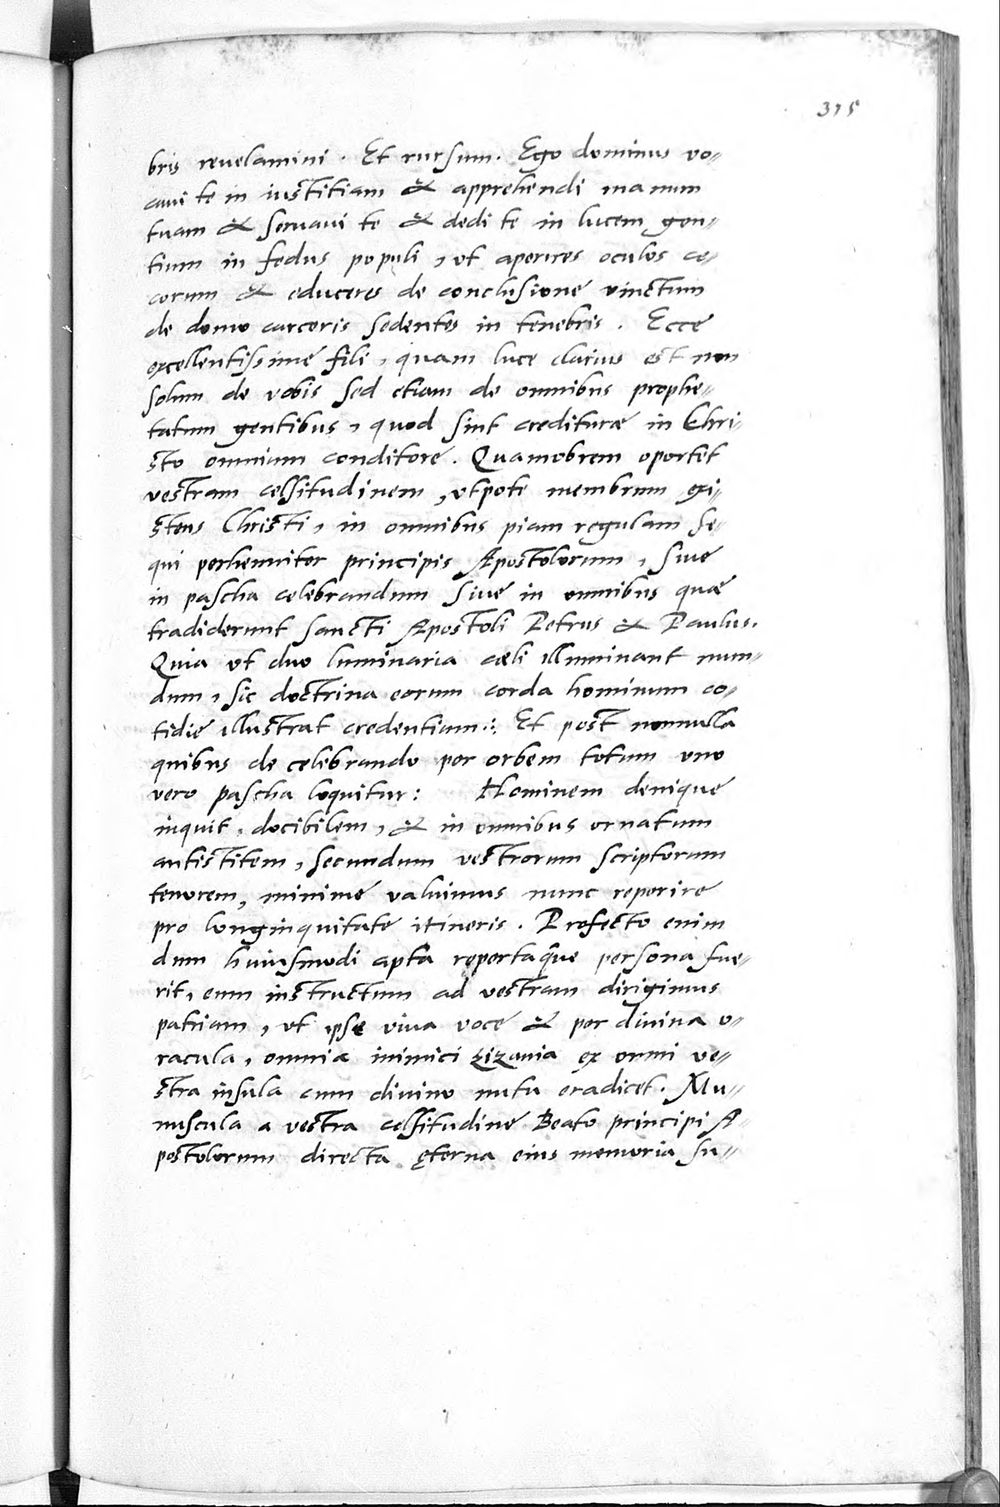 315
bris reuelamini. Et rursum. Ego dominus vo=
caui te in iustitiam & apprehendi manum
tuam & seruaui te & dedi te in lucem gen=
tium in fedus populi, vt aperires oculos ce=
corum & educeres de conclusione vinctum
de domo carceris sedentes in tenebris. Ecce
excellentissime fili, quam luce clarius est non
solum de vobis sed etiam de omnibus prophe=
tatum gentibus, quod sint crediturae in Chri=
sto omnium conditore. Quamobrem oportet
vestram celsitudinem, vtpote membrum exi=
stens Christi, in omnibus piam regulam se=
qui perhenniter principis Apostolorum, siue
in pascha celebrandum siue in omnibus quae
tradiderunt sancti Apostoli Petrus & Paulus.
Quia vt duo luminaria caeli illuminant mun=
dum, sic doctrina eorum corda hominum co=
tidie illustrat credentium: Et post nonnulla
quibus de celebrando per orbem totum vno
vero pascha loquitur: Hominem denique
inquit, docibilem, & in omnibus ornatum
antistitem, secundum vestrorum scriptorum
tenorem, minime valuimus nunc reperire
pro longinquitate itineris. Profecto enim
dum huiusmodi apta repertaque persona fue=
rit, eum instructum ad vestram dirigimus
patriam, vt ipse viua voce & per diuina o=
racula, omnia inimici zizania ex omni ve=
stra insula cum diuino nutu eradicet. Mu=
nuscula a vestra celsitudine Beato principi A=
postolorum directa ęterna eius memoria su=